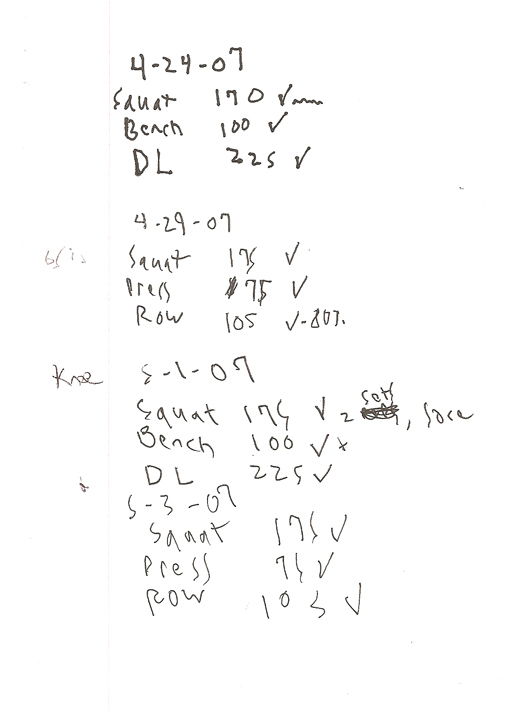 4-24-07
Squat 170 ✓
Bench 100 ✓
DL 225 ✓
4-29-07
Squat 175 ✓
Press 75 ✓
Row 105 ✓-80%.
Knee 5-1-07
Squat 175 ✓ 2 sets, sore
Bench 100 ✓ x
DL 225 ✓
5-3-07
Squat 175 ✓
Press 75 ✓
Row 105 ✓